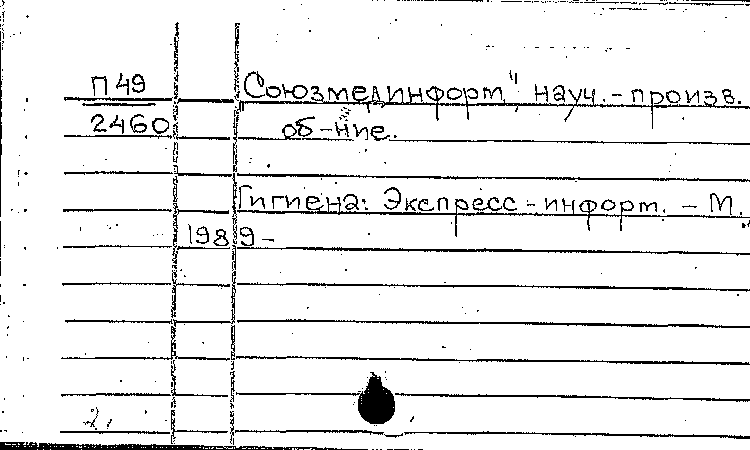 П 49
2460
"Союзмединформ", науч.-произв.
об-ние.
Гигиена: Экспресс-информ. - М.,
1989-
2,